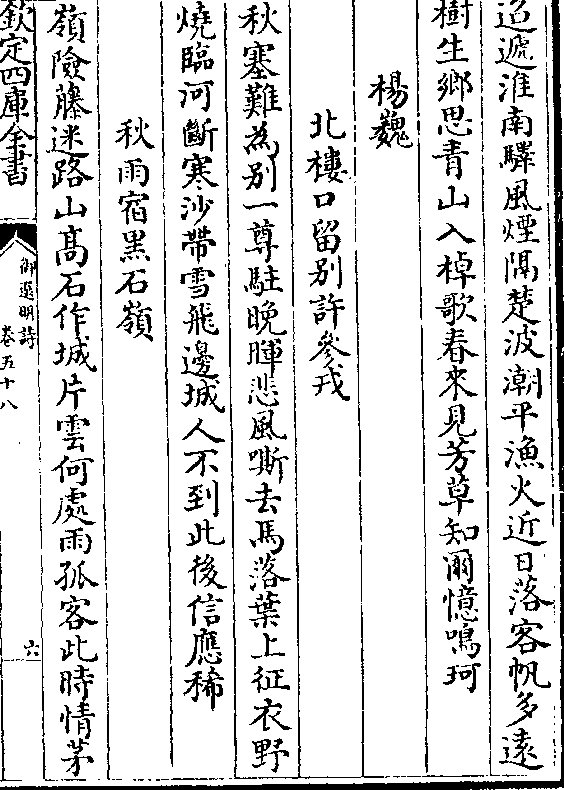 迢遞淮南驛風煙隔楚波潮平漁火近日落客帆多遠
樹生鄉思青山入棹歌春來見芳草知爾憶鳴珂
楊巍
北樓口留别許參戎
秋塞難為别一尊駐晚暉悲風嘶去馬落葉上征衣野
燒臨河斷寒沙帶雪飛邊城人不到此後信應稀
秋雨宿黑石嶺
嶺險藤迷路山髙石作城片雲何處雨孤客此時情茅
欽定四庫全書
御選明詩
卷五十八
六